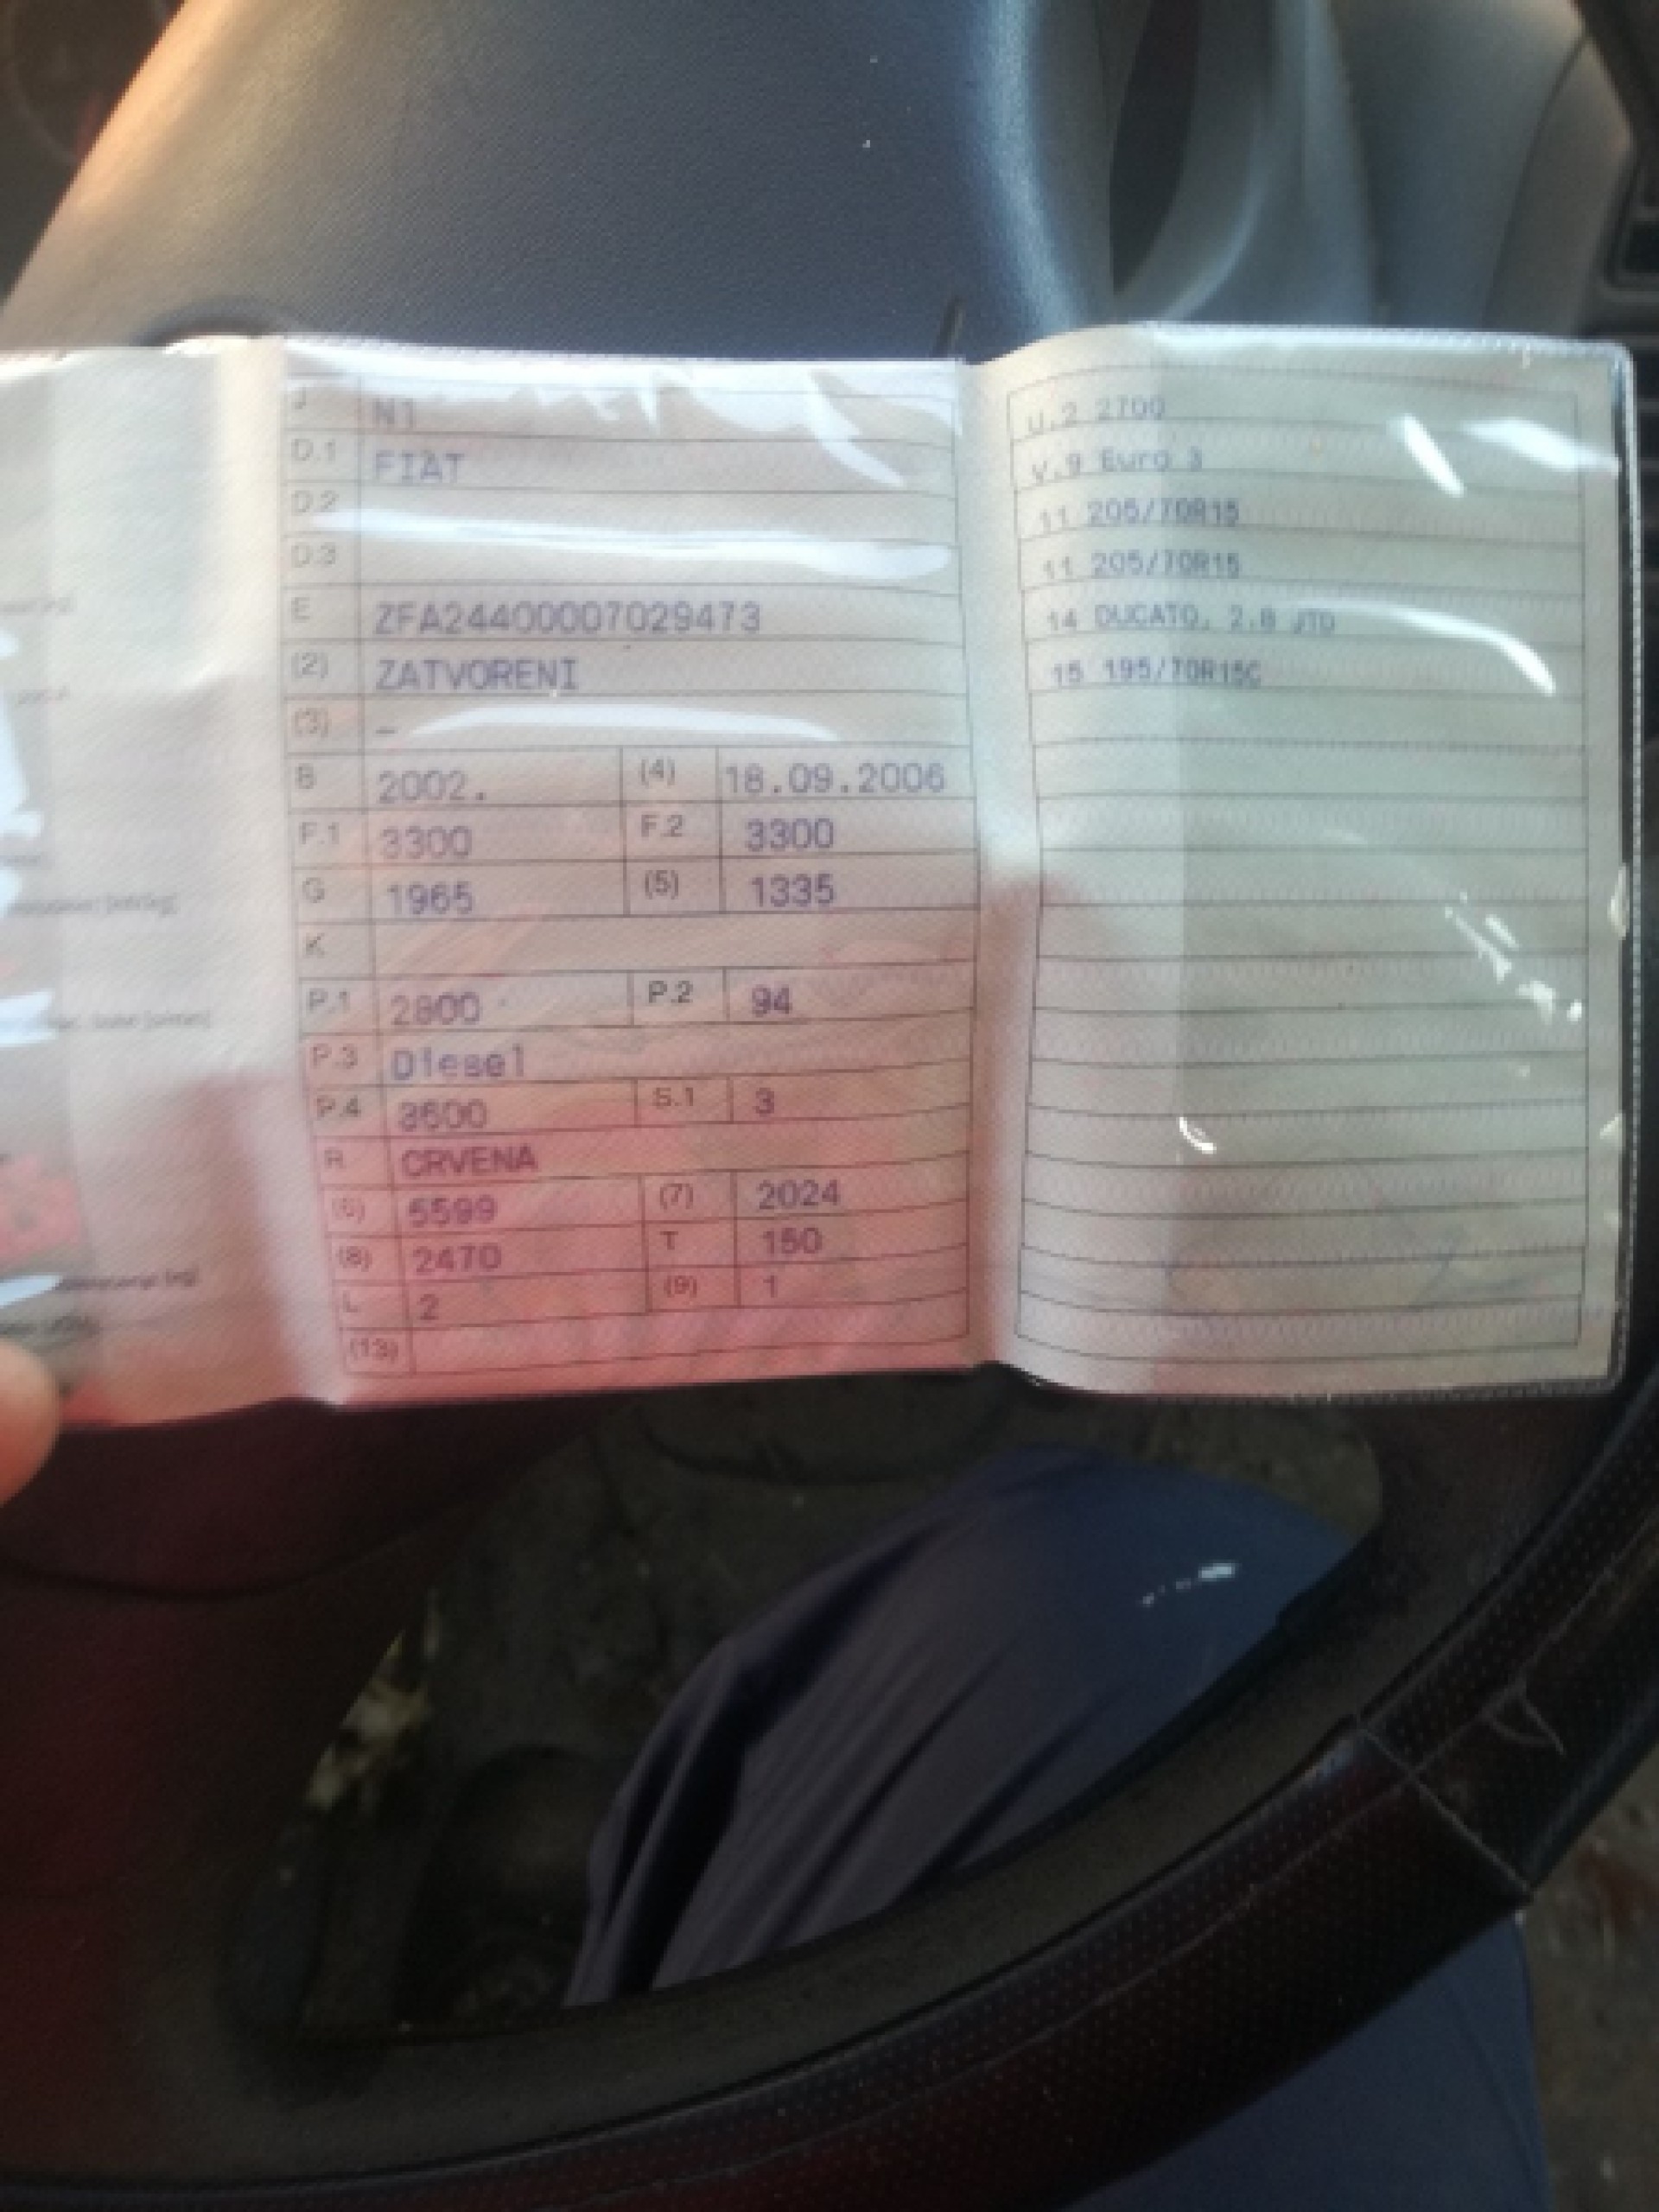 J N1
D.1 FIAT
D.2
D.3
E ZFA24400007029473
(2) ZATVORENI
(3) –
B 2002. (4) 18.09.2006
F.1 3300 F.2 3300
G 1965 (5) 1335
K
P.1 2800 P.2 94
P.3 Diesel
P.4 3600 S.1 3
R CRVENA
(6) 5599 (7) 2024
(8) 2470 T 150
L 2 (9) 1
(13)
U.2 2700
V.9 Euro 3
11 205/70R15
11 205/70R15
14 DUCATO, 2.8 JTD
15 195/70R15C